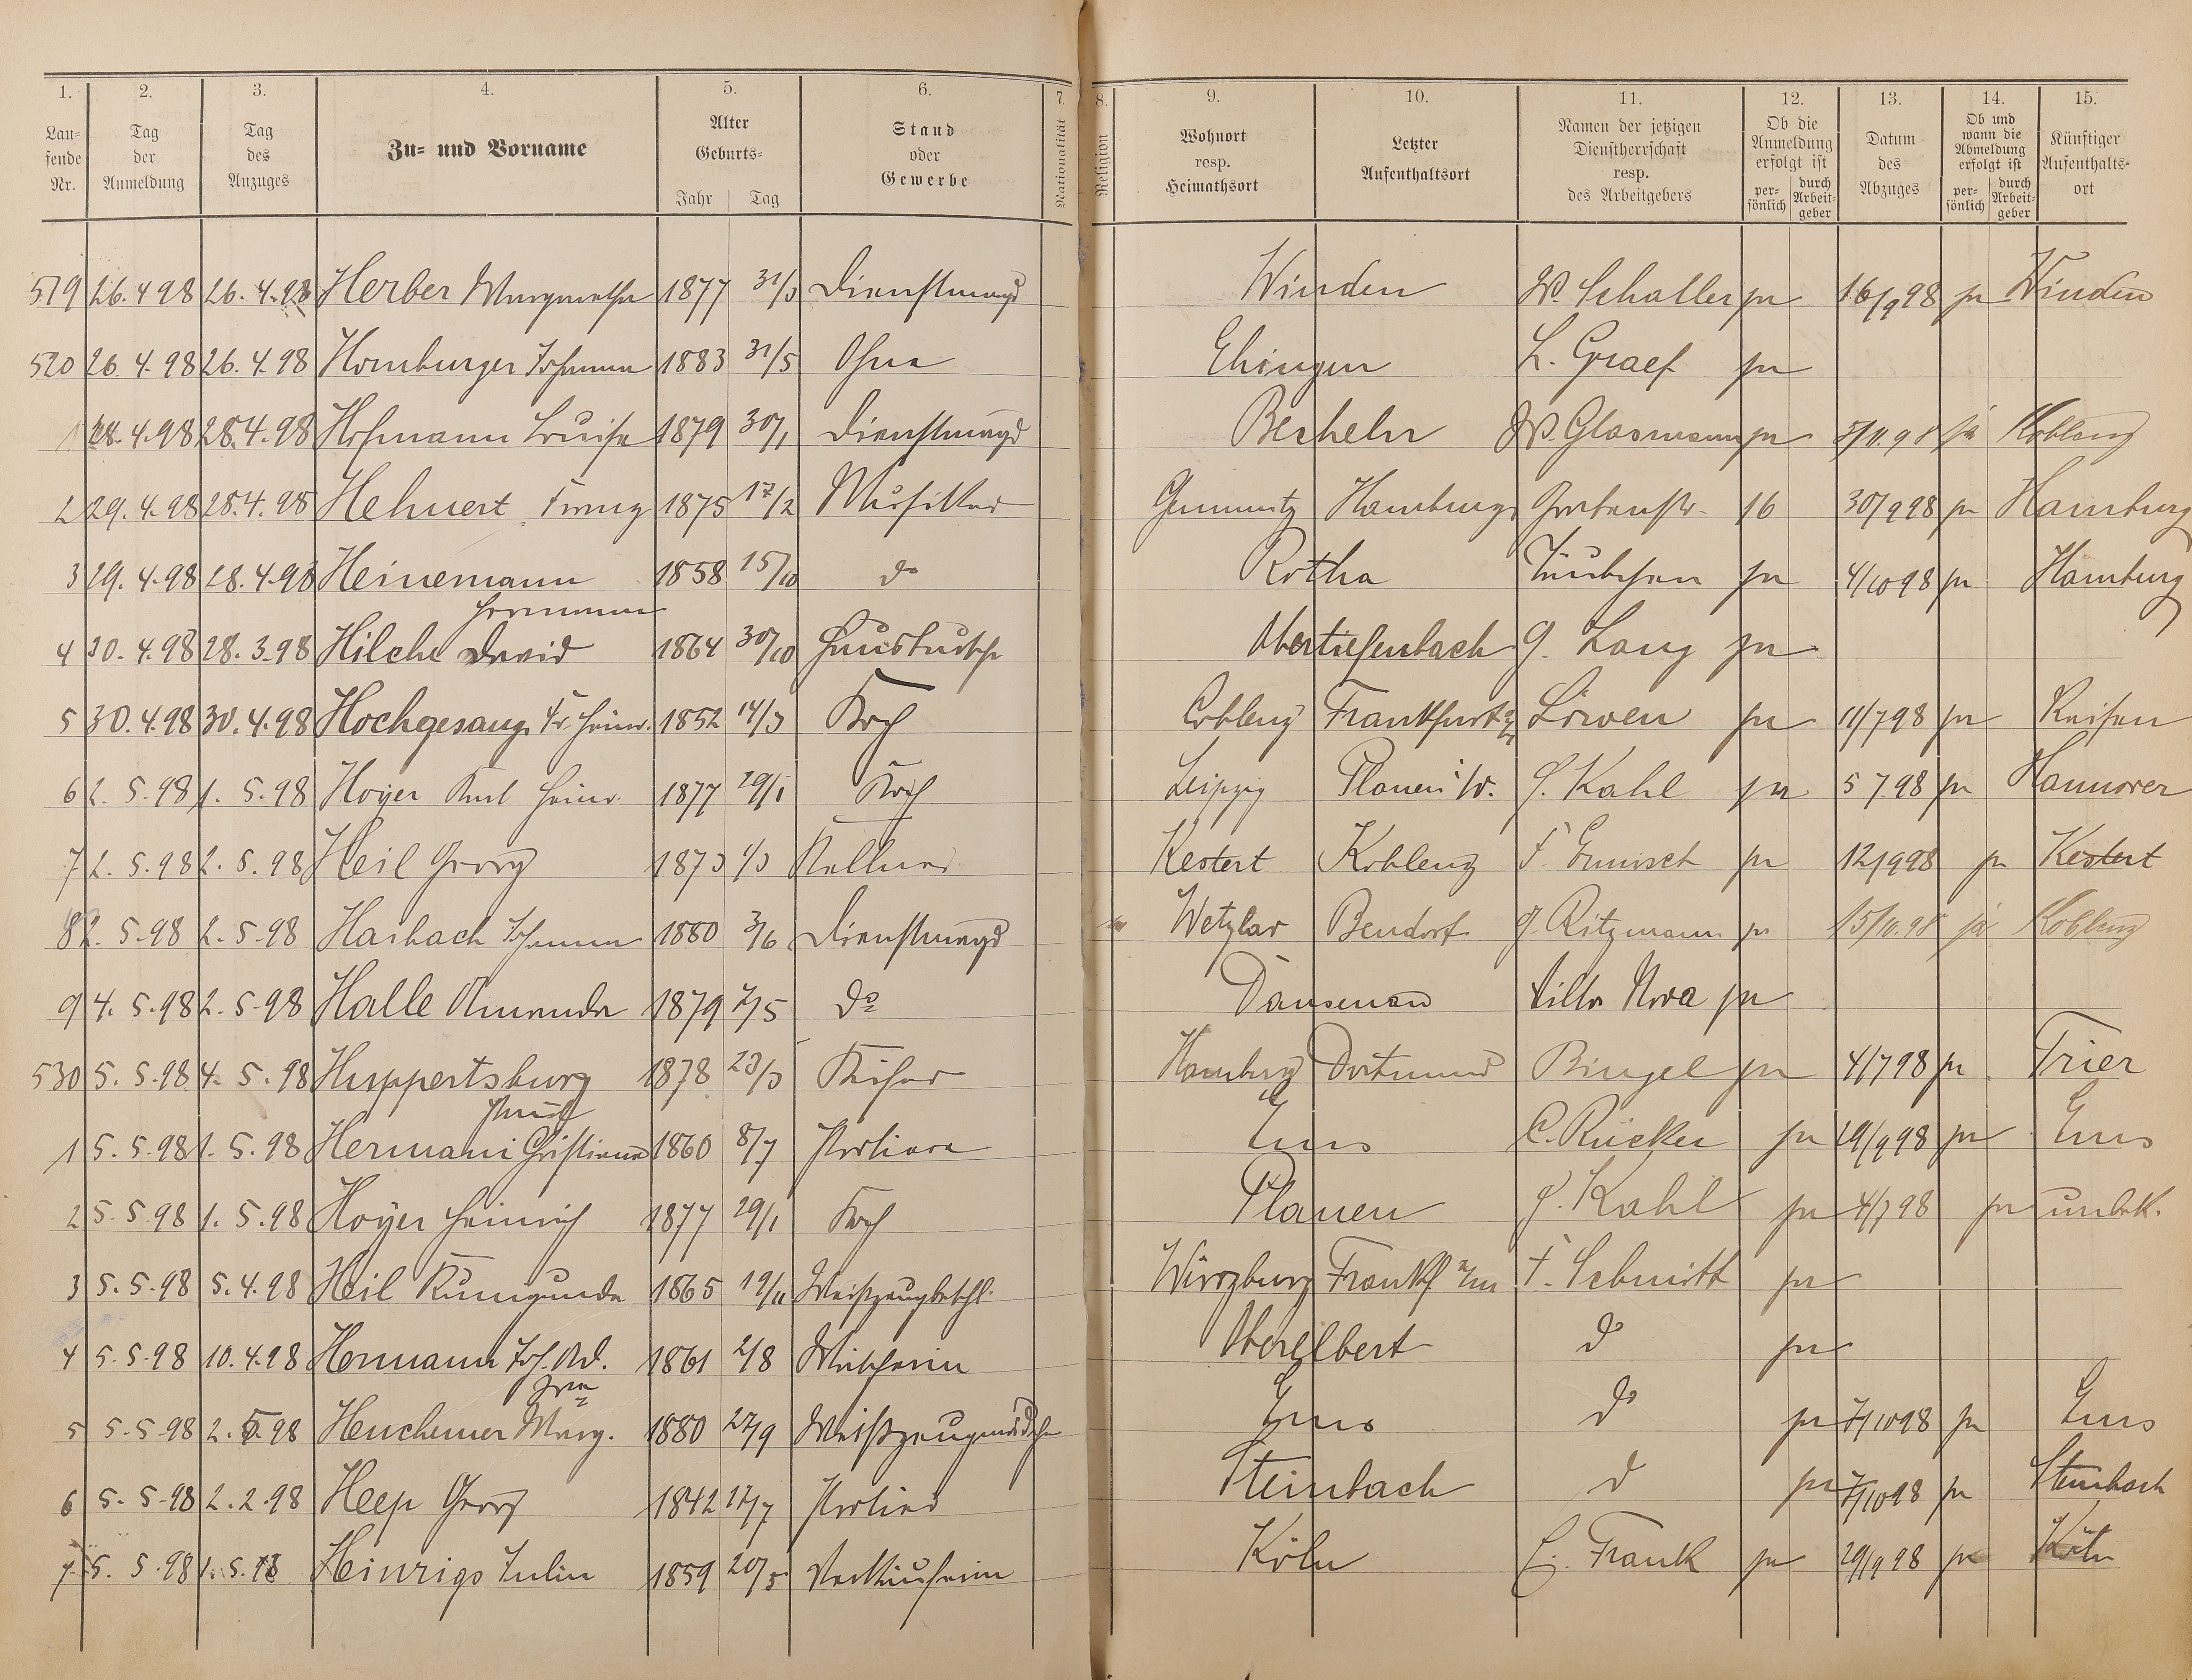 1. 2. 3. 4. 5. 6. 7. 8. 9. 10. 11. 12. 13. 14. 15.
Lau-fende Nr. Tag der Anmeldung Tag des Anzuges Zu- und Vorname Alter Geburts- Jahr Tag Stand oder Gewerbe Nationalität Religion Wohnort resp. Heimathsort Letzter Aufenthaltsort Namen der jetzigen Dienstherrschaft resp. des Arbeitgebers Ob die Anmeldung erfolgt ist per-sönlich durch Arbeit-geber Datum des Abzuges Ob und wann die Abmeldung erfolgt ist per-sönlich durch Arbeit-geber Künftiger Aufenthalts-ort
519 26. 4 98 26. 4. 98 Herber Margarethe 1877 31/3 Dienstmagd Winden W. Schaller ja 16/9 98 ja Winden
520 26. 4. 98 26. 4. 98 Homburger Johanna 1883 31/5 Ohne Ehingen L. Graef ja
1 28. 4. 98 28. 4. 98 Hofmann Louise 1879 30/1 Dienstmagd Becheln W. Glasmann ja 5/11. 98 ja Koblenz
2 29. 4. 98 28. 4. 98 Hehnert Franz 1875 17/2 Musiker Hamburg Gartenstr. 16 30/9 98 ja Hamburg
3 29. 4. 98 28. 4. 98 Heinemann Hermann 1858 15/10 do Rotha ja 4/10 98 ja Hamburg
4 30. 4. 98 28. 3. 98 Hilche David 1864 30/10 Hausbursche Obertiefenbach G. Lang ja
5 30. 4. 98 30. 4. 98 Hochgesang Fr. Heinr. 1852 14/3 Koch Coblenz Frankfurt a/M Löwen ja 11/7 98 ja Reisen
6 2. 5. 98 1. 5. 98 Hoyer Karl Heinr. 1877 29/1 Koch Leipzig Plauen i/V. G. Kahl ja 5 7. 98 ja Hannover
7 2. 5. 98 2. 5. 98 Heil Georg 1873 1/3 Kellner Kestert Koblenz F. Ermisch ja 12/9 98 ja Kestert
8 2. 5. 98 2. 5. 98 Hasbach Johanna 1880 3/6 Dienstmagd Wetzlar Bendorf G. Ritzmann ja 15/10. 98 ja Koblenz
9 4. 5. 98 2. 5. 98 Halle Amanda 1879 7/5 do Dausenau Villa Nova ja
530 5. 5. 98 4. 5. 98 Huppertsburg 1878 23/3 Küfer Hamburg Dortmund Bingel ja 4/7 98 ja Trier
1 5. 5. 98 1. 5. 98 Hermani Christiane 1860 8/7 Portiere Ems C. Rücker ja 29/9 98 ja Ems
2 5. 5. 98 1. 5. 98 Hoyer Heinrich 1877 29/1 Koch Plauen G. Kahl ja 4/7 98 ja unbek.
3 5. 5. 98 5. 4. 98 Heil Kunigunde 1865 19/11 Weißzeugbeschl. Würzburg Frankf a/M F. Schmitt ja
4 5. 5. 98 10. 4. 98 Hermann Joh. Ad. Frau 1861 2/8 Wäscherin Oberelbert do ja
5 5. 5. 98 2. 5. 98 Heuchemer Marg. 1880 27/9 Weißzeugmädchen Ems do ja 7/10 98 ja Ems
6 5. 5. 98 2. 2. 98 Heep Georg 1842 17/7 Portier Steinbach do ja 7/10 98 ja Steinbach
7 5. 5. 98 1. 5. 98 Heinrigs Julie 1859 20/5 Verkäuferin Köln E. Frank ja 29/9 98 ja Köln